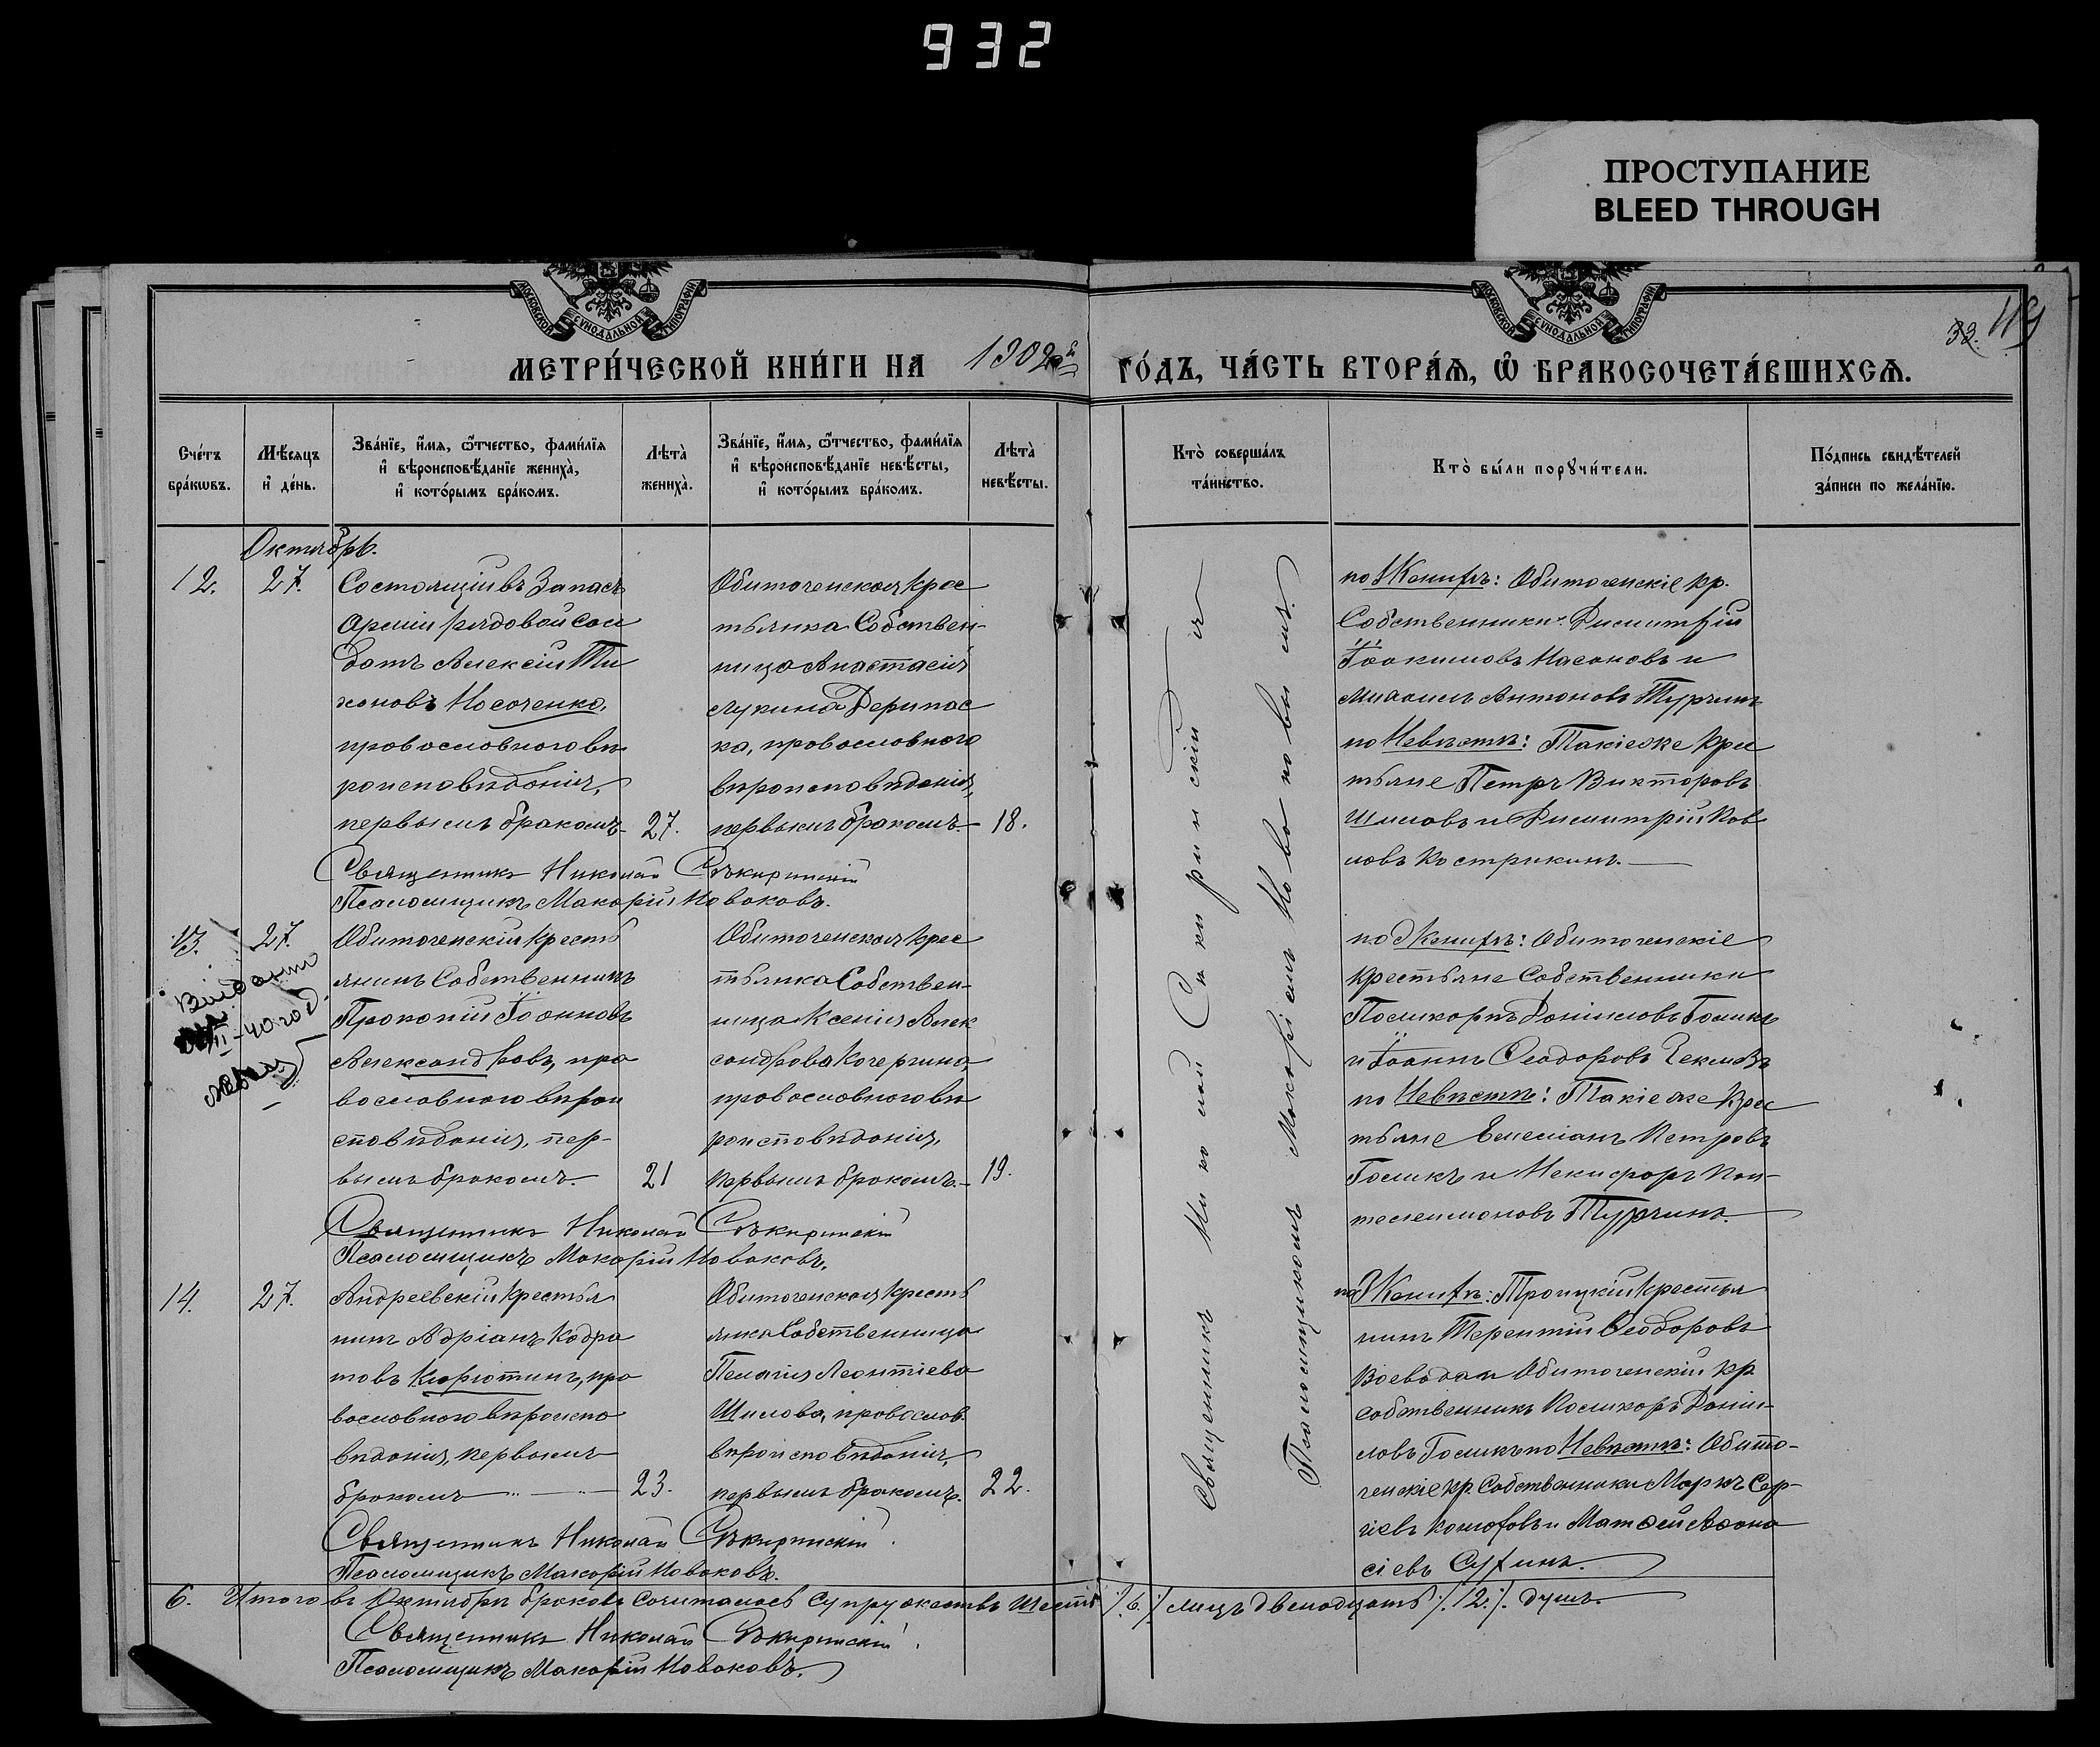 932
ПРОСТУПАНИЕ
BLEED THROUGH
МОСКОВСКОЙ СѴНОДАЛЬНОЙ ТИПОГРАФІИ
МОСКОВСКОЙ СѴНОДАЛЬНОЙ ТИПОГРАФІИ
32. 119
МЕТРИ́ЧЕСКОЙ КНИ́ГИ НА 1902й ГО́ДЪ, ЧА́СТЬ ВТОРА́Ѧ, Ѿ БРАКОСОЧЕТА́ВШИХСѦ.
Сче́тъ
бра́кѡвъ.
Мѣ́сяцъ
и҆ де́нь.
Зва́нїе, и҆́мя, ѻ҆́тчество, фами́лїя
и҆ вѣроисповѣ́данїе жениха̀,
и҆ кото́рымъ бра́комъ.
Лѣта̀
жениха̀.
Зва́нїе, и҆́мя, ѻ҆́тчество, фами́лїя
и҆ вѣроисповѣ́данїе невѣ́сты,
и҆ кото́рымъ бра́комъ.
Лѣта̀
невѣ́сты.
Кто̀ соверша́лъ
та́инство.
Кто̀ бы́ли порꙋчи́тели.
По́дпись свидѣ́телей
за́писи по жела́нїю.
Октябрь.
12.
27.
Состоящій въ запасѣ
арміи рядовой сол
датъ Алексій Ти
хоновъ Носоченко,
православнаго вѣ
роисповѣданія,
первымъ бракомъ
27.
Обиточенская крес
тьянка Собствен-
ница Анастасія
Лукина Дерипас
ка, православнаго
вѣроисповѣданія,
первымъ бракомъ
18.
по Женихѣ: Обиточенскіе кр.
Собственники: Димитрій
Іоакимовъ Насоновъ и
Михаилъ Антоновъ Турчинъ
по Невѣстѣ: Такіеже крес
тьяне Петръ Викторовъ
Шиловъ и Димитрій Пав
ловъ Кострикинъ.
Священникъ Николай Сѣкиринскій
Псаломщикъ Макарій Новаковъ.
13.
27.
Видано
II-40 год.
Обиточенскій кресть
янинъ Собственникъ
Прокопій Іоанновъ
Александровъ, пра
вославнаго вѣрои
сповѣданія, пер-
вымъ бракомъ.
21
Обиточенская крес
тьянка Собствен-
ница Ксенія Алек
сандрова Кочергина,
православнаго вѣ
роисповѣданія,
первымъ бракомъ.
19.
по Женихѣ: Обиточенскіе
крестьяне Собственники
Поликарпъ Даніиловъ Голикъ
и Іоаннъ Ѳеодоровъ
по Невѣстѣ: Такіеже крес
тьяне Емеліанъ Петровъ
Голикъ и Никифоръ Пан-
телеимоновъ Турчинъ.
Священникъ Николай Сѣкиринскій
Псаломщикъ Макарій Новаковъ.
14.
27.
Андреевскій крестья
нинъ Адріанъ Кодра
товъ Кирютинъ, пра
вославнаго вѣроиспо
вѣданія, первымъ
бракомъ
23.
Обиточенская кресть
янка Собственница
Пелагія Леонтіева
Шилова, православ.
вѣроисповѣданія,
первымъ бракомъ.
22.
по Женихѣ: Троицкій крестья
нинъ Терентій Ѳеодоровъ
Воевода и Обиточенскій кр.
собственникъ Поликарпъ Даніи-
ловъ Голикъ по Невѣстѣ: Обито-
ченскіе кр. Собственники Маркъ Сер-
гіевъ и Матѳей Аѳана
сіевъ
Священникъ Николай Сѣкиринскій
Псаломщикъ Макарій Новаковъ.
Священникъ Николай Сѣкиринскій
Псаломщикомъ Макаріемъ Новаковымъ.
6. Итого въ Октябрѣ браковъ сочиталось супружествъ шесть /6./ лицъ двенадцать /12./ душъ.
Священникъ Николай Сѣкиринскій
Псаломщикъ Макарій Новаковъ.